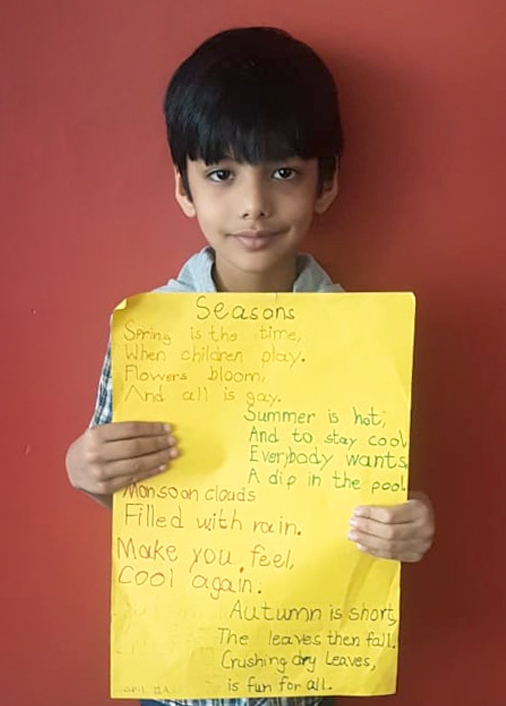 Seasons
Spring is the time,
When children play.
Flowers bloom,
And all is gay.
Summer is hot,
And to stay cool
Everybody wants
A dip in the pool.
Monsoon clouds
Filled with rain.
Make you feel,
Cool again.
Autumn is short,
The leaves then fall.
Crushing dry leaves,
is fun for all.